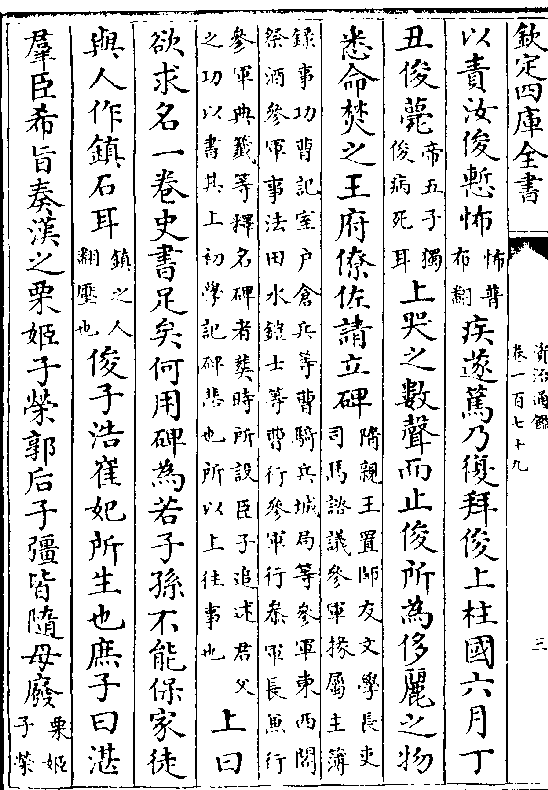 欽定四庫全書
資治通鑑
卷一百七十九
三
以責汝俊慙怖怖普布翻疾遂篤乃復拜俊上柱國六月丁
丑俊薨帝五子獨俊病死耳上哭之數聲而止俊所為侈麗之物
悉命焚之王府僚佐請立碑隋親王置師友文學長吏司馬諮議參軍掾屬主簿
錄事功曹記室戶倉兵等曹騎兵城局等參軍東西閤
祭酒參軍事法田水鎧士等曹行參軍行叅軍長兼行
參軍典籤等釋名碑者葬時所設臣子追述君父
之功以書其上初學記碑悲也所以上往事也上曰
欲求名一卷史書足矣何用碑為若子孫不能保家徒
與人作鎮石耳鎮之人翻壓也俊子浩崔妃所生也庶子曰湛
羣臣希旨奏漢之栗姬子榮郭后子彊皆隨母廢栗姬子榮